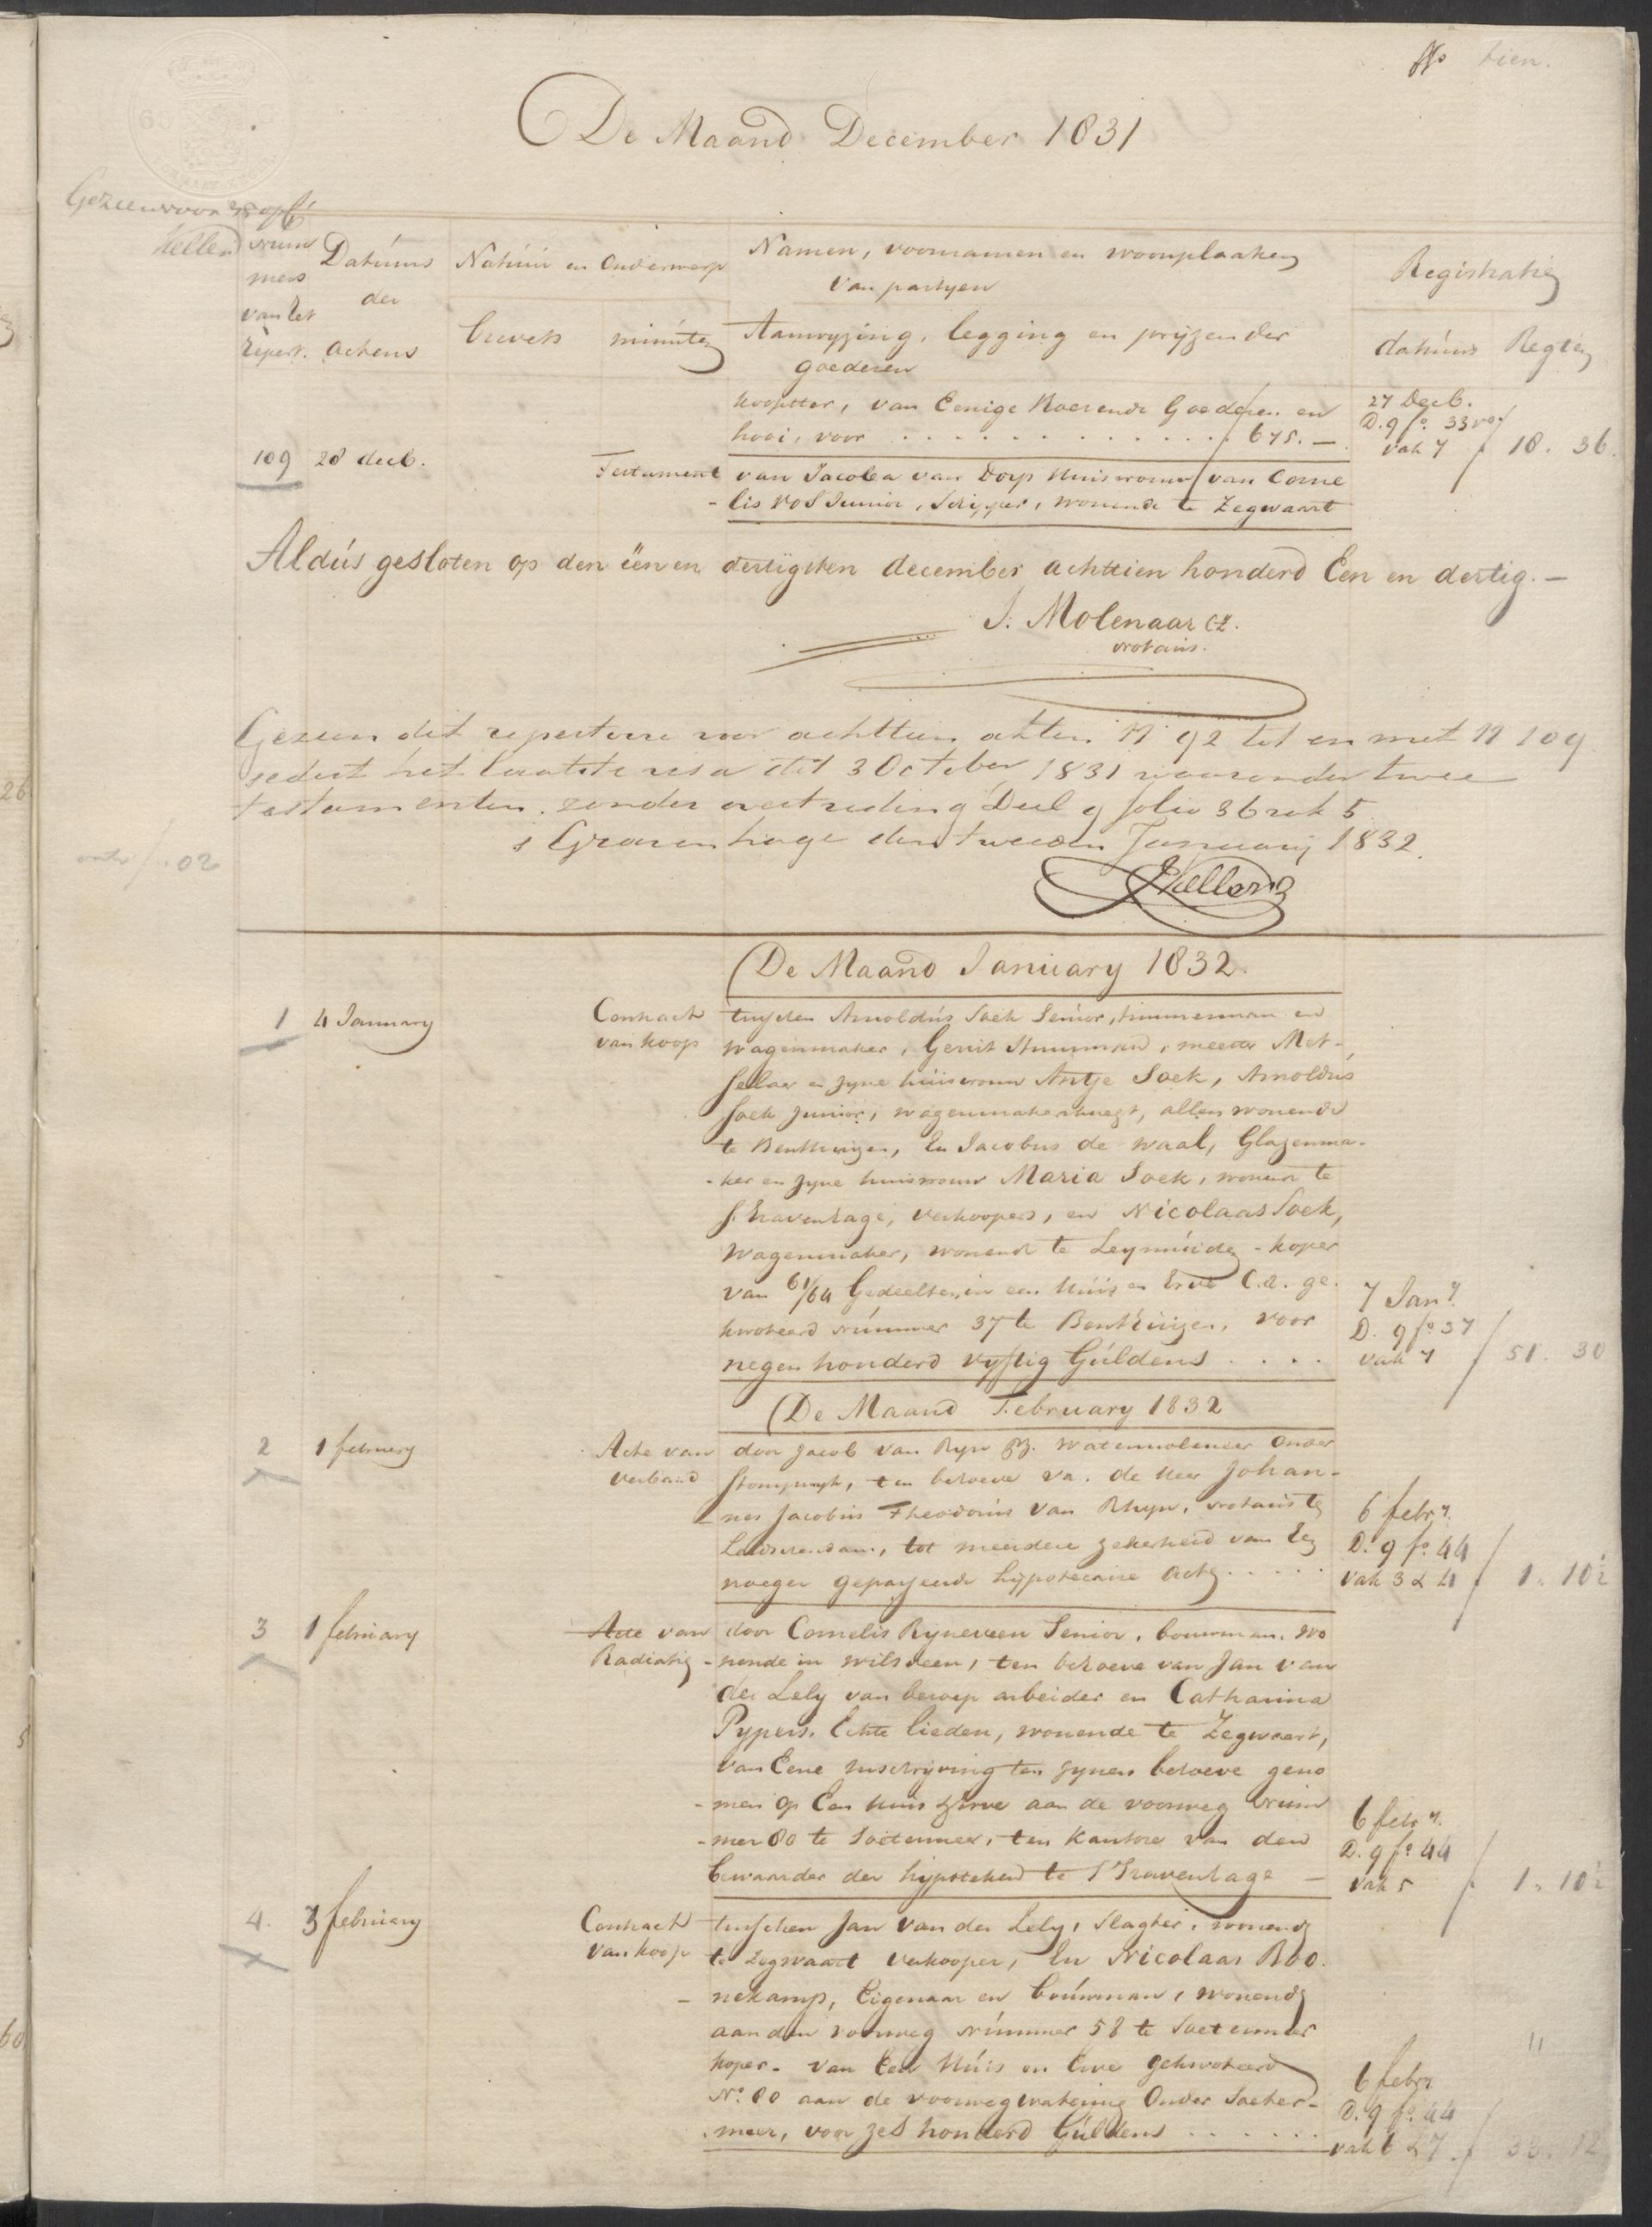 ffo tien.
De Maand December 1831
Gezien voor
Kellen
num
mers
van het
repert.
Datúms
der
actens
Natúúr en Onderwerp
brevets
minúten
Namen, voornamen en woonplaatsen
van partyen
Aanwyzing, legging en pryzen der
goederen
Registratie
datúms Regten
kooptter, van Eenige Roerende Goederen en
hooi, voor . . . . . . . . . . . . . f 675. —
27 Decb.
D. 9 fo. 33 vo.
vak 7 f 18. 36.
109 28 decb. Testament van Jacoba van Dorp huisvrouw van Corne
- lis Vos Junior, Schipper, wonende te Zegwaart
Aldús gesloten op den één en dertigsten december achttien honderd Een en dertig. —
J. Molenaar CZ.
notaris.
Gezien dit repertoire voor achttien akten N 92 tot en met N 109
sedert het laatste visa van 3 October 1831 waaronder twee
testamenten. zonder overtreding Deel 9 folio 36 vak 5
s Gravenhage den tweeden January 1832.
Kellen
De Maand January 1832.
1 4 January Contract
van koop
tusschen Arnoldús Soek Senior, timmerman en
wagenmaker, Gerrit Stuurman, meester Met-
selaar en zyne húisvrouw Antje Soek, Arnoldus
Soek Junior, wagenmakersknegt, allen wonende
te Benthuizen, En Jacobus de Waal, Glazenma-
- ker en zyne huisvrouw Maria Soek, wonende te
s. Gravenhage, verkoopers, en Nicolaas Soek,
Wagenmaker, wonende te Leymúiden - koper
van 61/64 Gedeelten, in een Húis en Erve C.a. ge-
kwoteerd númmer 37 te Benthúizen, voor
negen honderd vyftig Gúldens . . . .
7 Jany.
D. 9 fo 37
vak 7 f 51. 30
De Maand February 1832
2 1 february Acte van
verband
door Jacob van Ryn PZ. Watermolenaar onder
Stompwyk, ten behoeve va. de Heer Johan-
nes Jacobus Theodorus van Rhyn, notaris te
Leidschendam, tot meerdere zekerheid van de
vroeger gepasseerde hypotecaire acte . . . . .
6 febry.
D. 9 fo. 44
vak 3 & 4 f 1. 10½
3 1 february Acte van
Radiatie
door Cornelis Ryneveen Senior, bouwman, wo
- nende in Wilsveen, ten behoeve van Jan van
der Lely van beroep arbeider en Catharina
Pypers, Echte lieden, wonende te Zegwaart,
van Eene inschryving ten zynen behoeve geno
- men op Een huis & Erve aan de voorweg num
- mer 80 te Soetermeer, ten kantore van den
bewaarder der hypotheken te S'Gravenhage —
6 febry.
D. 9 fo. 44
vak 5 f 1. 10½
4. 3 february Contract
van koop
tusschen Jan van der Lely, Slagter, wonende
te Zegwaart verkooper, En Nicolaas Boo-
- nekamp, Eigenaar en boúwman, wonende
aan den voorweg númmer 58 te Soetermeer
koper - van Een Húis en Erve gekwoteerd
No. 80 aan de voorwegwatering onder Soeter-
- meer, voor zes honderd Gúldens . . . . . .
6 febry
D. 9 fo. 44
vak 6 & 7. f 33. 12